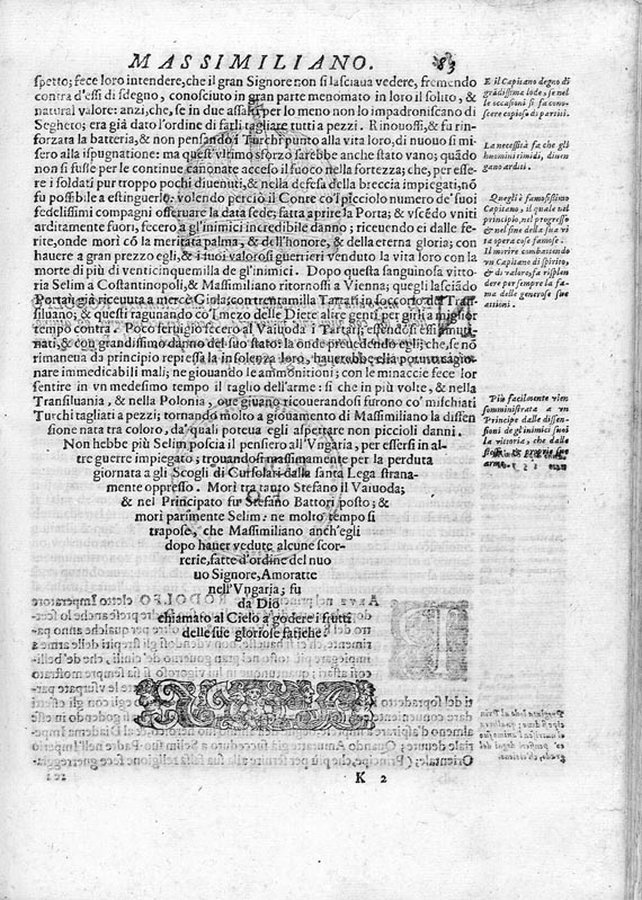 MASSIMILIANO. 83
spetto; fece loro intendere, che il gran Signore non si lasciaua vedere, fremendo
contra d'essi di sdegno, conosciuto in gran parte menomato in loro il solito, &
natural valore: anzi, che, se in due assalti per lo meno non lo impadroniscano di
Segheto; era già dato l'ordine di farli tagliare tutti a pezzi. Rinouossi, & fu rin-
forzata la batteria, & non pensando i Turchi punto alla vita loro, di nuouo si mi-
sero alla ispugnatione: ma quest'vltimo sforzo sarebbe anche stato vano; quãdo
non si fusse per le continue cañonate acceso il fuoco nella fortezza; che, per esse-
re i soldati pur troppo pochi diuenuti, & nella defesa della breccia impiegati, nõ
fu possibile a estinguerlo: volendo perciò il Conte co'l picciolo numero de' suoi
fedelissimi compagni osseruare la data fede; fatta aprire la Porta; & vscẽdo vniti
arditamente fuori, fecero a gl'inimici incredibile danno; riceuendo ei dalle fe-
rite, onde morì cõ la meritata palma, & dell'honore, & della eterna gloria; con
hauere a gran prezzo egli, & i tuoi valorosi guerrieri venduto la vita loro con la
morte di più di venticinquemilla de gl'inimici. Dopo questa sanguinosa vitto-
ria Selim a Costantinopoli, & Massimiliano ritornossi a Vienna; quegli lasciãdo
Portaù già riceuuta a mercè Giula; con trentamilla Tartari in soccorso del Tran-
siluano; & questi ragunando co'l mezo delle Diete altre genti per gir a miglior
tempo contra. Poco seruigio fecero al Vaiuoda i Tartari; essendosi essi muti-
nati, & con grandissimo danno del suo stato: la onde preuedendo egli; che, se nõ
rimaneua da principio repressa la insolenza loro, hauerebbe ella potuto cagio-
nare immedicabili mali; ne giouando le ammonitioni; con le minaccie fece lor
sentire in vn medesimo tempo il taglio dell'arme: sì che in più volte, & nella
Transiluania, & nella Polonia, oue giuano ricouerandosi furono co' mischiati
Turchi tagliati a pezzi; tornando molto a giouamento di Massimiliano la dissen
sione nata tra coloro, da' quali poteua egli aspettare non piccioli danni.
Non hebbe più Selim poscia il pensiero all'Vngaria, per essersi in al-
tre guerre impiegato; trouandosi massimamente per la perduta
giornata a gli Scogli di Cursolari dalla santa Lega strana-
mente oppresso. Morì tra tanto Stefano il Vaiuoda;
& nel Principato fu Stefano Battori posto; &
morì parimente Selim: ne molto tempo si
trapose, che Massimiliano anch'egli
dopo hauer vedute alcune scor-
rerie, fatte d'ordine del nuo
uo Signore, Amoratte
nell'Vngaria; fu
da Dio
chiamato al Cielo a godere i frutti
delle sue gloriose fatiche.
K 2
E il Capitano degno di
grãdissima lode, se nel
le occasioni si fa cono-
scere copioso di partiti.
La necessità fa che gli
huomini timidi, diuen
gano arditi.
Quegli è famosissimo
Capitano, il quale nel
principio, nel progresso
& nel fine della sua vi
ta opera cose famose.
Il morire combattendo
vn Capitano di spirito,
& di valore, fa risplen
dere per sempre la fa-
ma delle generose sue
attioni.
Più facilmente vien
somministrata a vn
Principe dalle dissen-
sioni de gl'inimici suoi
la vittoria, che dalle
sue proprie
arme.